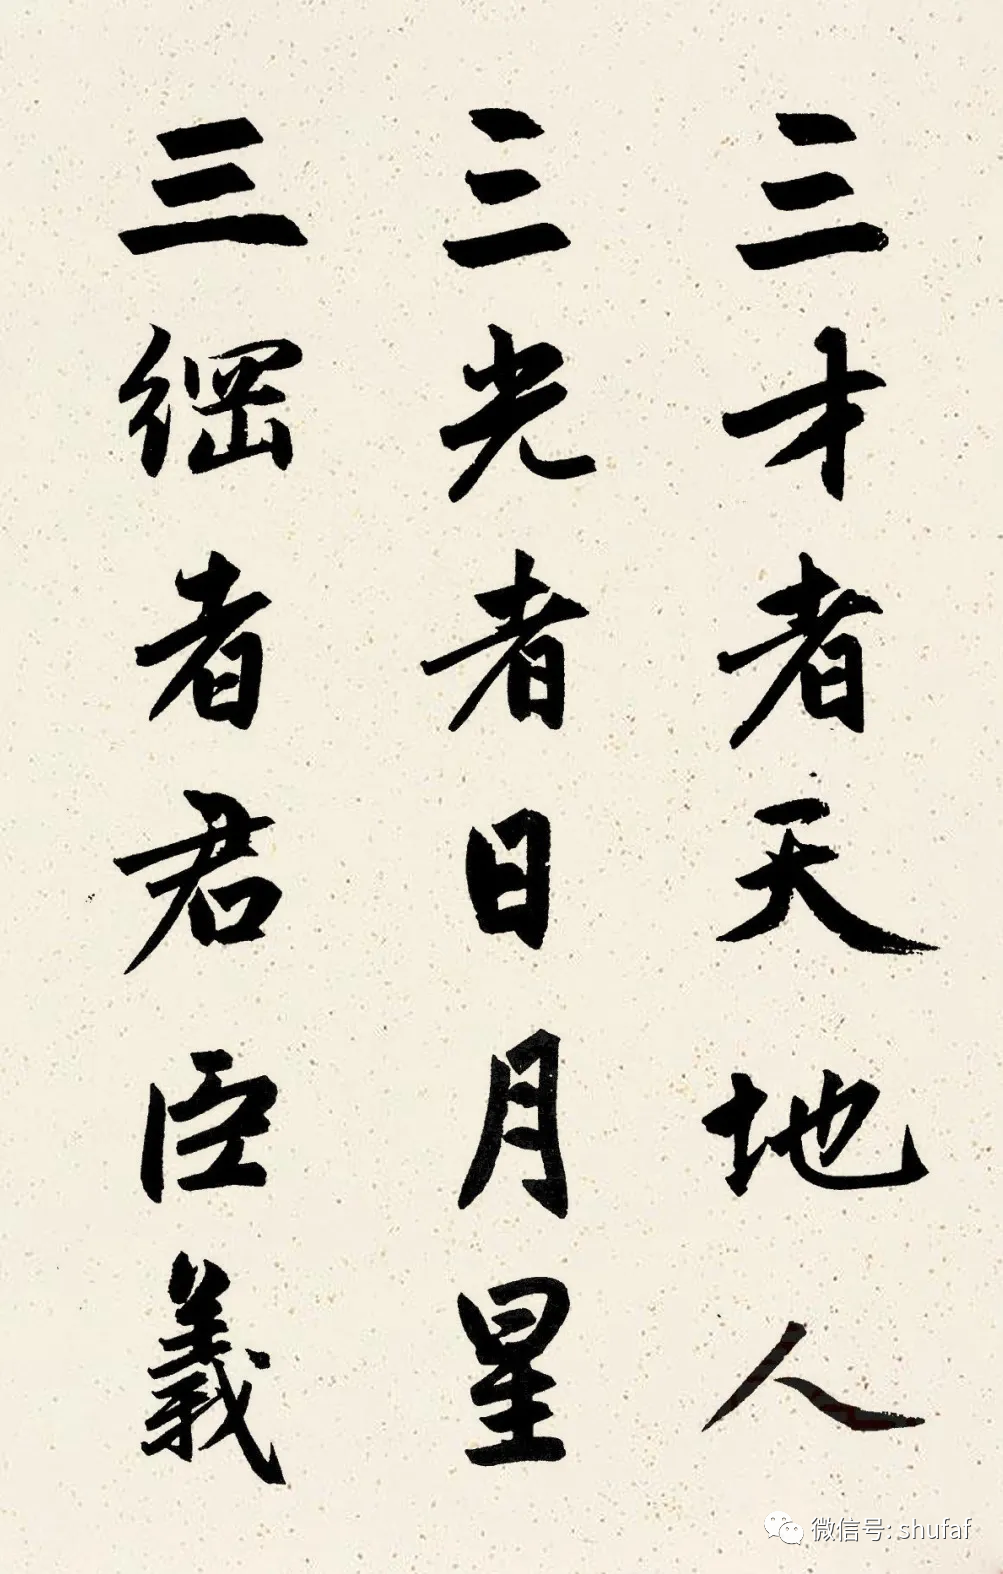 三才者天地人
三光者日月星
三綱者君臣義
微信号: shufaf